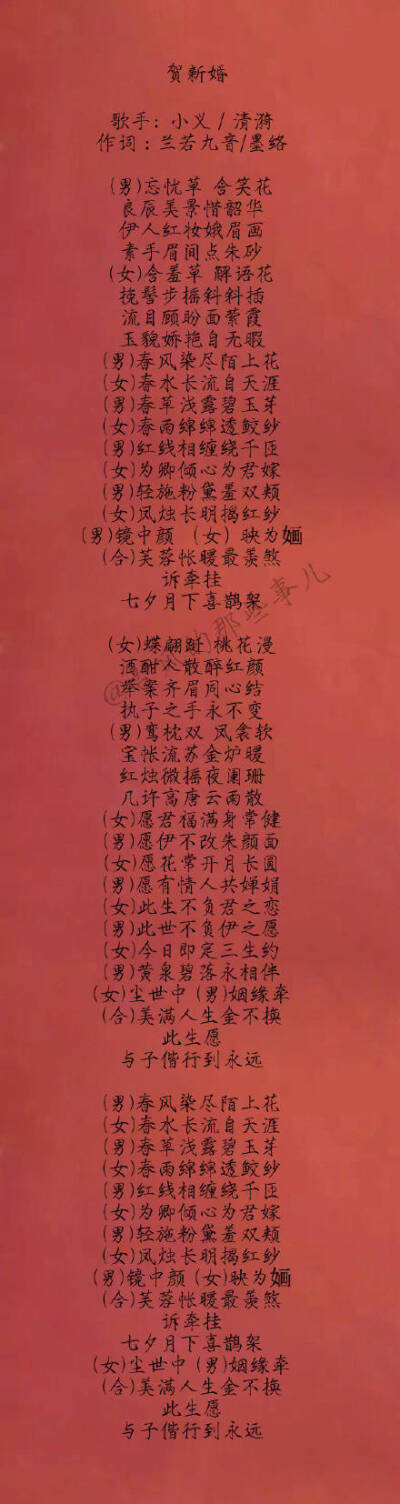 贺新婚
歌手：小义 / 清漪
作词：兰若九音/墨络
(男)忘忧草 含笑花
良辰美景惜韶华
伊人红妆娥眉画
素手眉间点朱砂
(女)含羞草 解语花
挽髻步摇斜斜插
流目顾盼面萦霞
玉貌娇艳自无暇
(男)春风染尽陌上花
(女)春水长流自天涯
(男)春草浅露碧玉芽
(女)春雨绵绵透鲛纱
(男)红线相缠绕千匝
(女)为卿倾心为君嫁
(男)轻施粉黛羞双颊
(女)凤烛长明揭红纱
(男)镜中颜 （女）映为婳
(合)芙蓉帐暖最羡煞
诉牵挂
七夕月下喜鹊架
(女)蝶翩跹 桃花漫
酒酣人散醉红颜
举案齐眉同心结
执子之手永不变
(男)鸾枕双 凤衾软
宝帐流苏金炉暖
红烛微摇夜澜珊
几许高唐云雨散
(女)愿君福满身常健
(男)愿伊不改朱颜面
(女)愿花常开月长圆
(男)愿有情人共婵娟
(女)此生不负君之恋
(男)此世不负伊之愿
(女)今日即定三生约
(男)黄泉碧落永相伴
(女)尘世中 (男)姻缘牵
(合)美满人生金不换
此生愿
与子偕行到永远
(男)春风染尽陌上花
(女)春水长流自天涯
(男)春草浅露碧玉芽
(女)春雨绵绵透鲛纱
(男)红线相缠绕千匝
(女)为卿倾心为君嫁
(男)轻施粉黛羞双颊
(女)凤烛长明揭红纱
(男)镜中颜 (女)映为婳
(合)芙蓉帐暖最羡煞
诉牵挂
七夕月下喜鹊架
(女)尘世中 (男)姻缘牵
(合)美满人生金不换
此生愿
与子偕行到永远
那些事儿